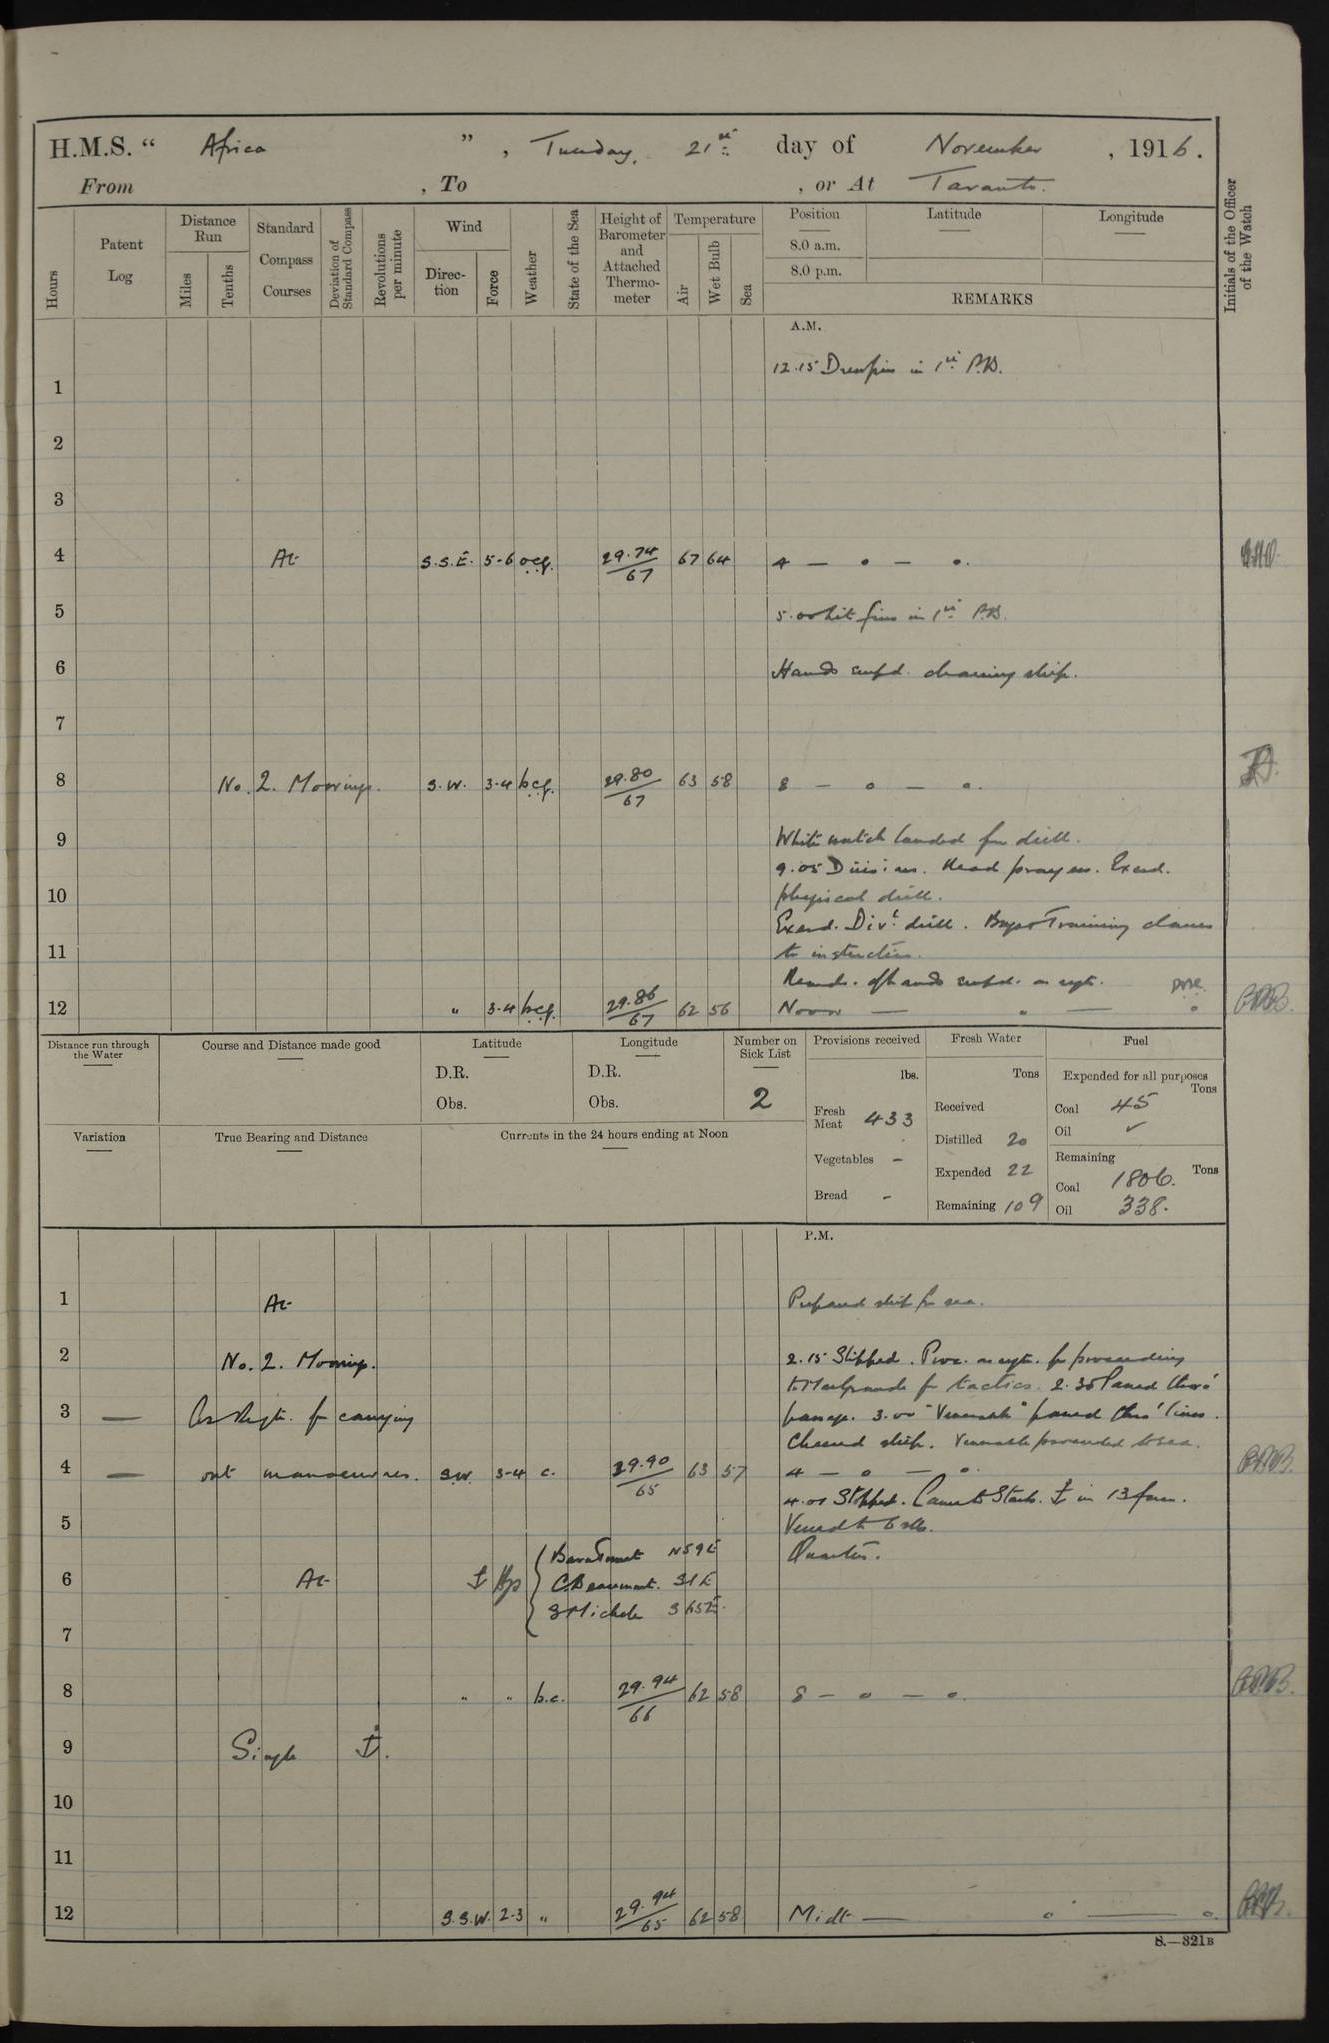 H.M.S. “ Africa ” , Tuesday, 21st day of November , 1916.
From , To , or At Taranto.
Hours
Patent Log
Distance Run
Miles
Tenths
Standard Compass Courses
Deviation of Standard Compass
Revolutions per minute
Wind
Direction
Force
Weather
State of the Sea
Height of Barometer and Attached Thermometer
Temperature
Air
Wet Bulb
Sea
Position
Latitude
Longitude
8.0 a.m.
8.0 p.m.
REMARKS
Initials of the Officer of the Watch
A.M.
12.15 Drew fires in 1st P.B.
1
2
3
4 At S.S.E. 5-6 ocq. 29.74/67 67 64 4 — o — o.
5 5.00 Lit fires in 1st P.B.
6 Hands empd. cleaning ship.
7
8 No. 2. Moorings. S.W. 3-4 bcq. 29.80/67 63 58 8 — o — o.
9 White watch landed for drill.
9.05 Divisions. Read prayers. Exerd.
10 physical drill.
Exerd. Divl. drill. Boys & Training classes
11 to instruction.
Remdr. of hands empd. as reqte.
12 " 3-4 bcq. 29.86/67 62 56 Noon — o — o
Distance run through the Water
Course and Distance made good
Latitude
D.R.
Obs.
Longitude
D.R.
Obs.
Number on Sick List
2
Provisions received
lbs.
Fresh Meat 433
Vegetables -
Bread -
Fresh Water
Tons
Received
Distilled 20
Expended 22
Remaining 109
Fuel
Expended for all purposes
Tons
Coal 45
Oil ✓
Remaining
Tons
Coal 1806.
Oil 338.
Variation
True Bearing and Distance
Currents in the 24 hours ending at Noon
P.M.
1 At Prepared ship for sea.
2 No. 2. Moorings. 2.15 Slipped. Proc. as reqte. for proceeding
to Mar Grande for tactics. 2.35 Passed thro'
3 — As Reqte. for carrying passage. 3.00 "Venerable" passed thro' lines.
Cheered ship. Venerable proceeded to sea.
4 — out manoeuvres. S.W. 3-4 c. 29.90/65 63 57 4 — o — o.
4.01 Stopped. Came to Starb. ⚓ in 13 fms.
5 Veered to 6 shs.
Quarters.
6 At ⚓ N59E
C. Beaumont. S1E
S Michele S65E.
7
8 " " b.c. 29.94/66 62 58 8 — o — o.
9 Single ⚓.
10
11
12 S.S.W. 2-3 " 29.94/65 62 58 Midt — o — o.
S.—321B